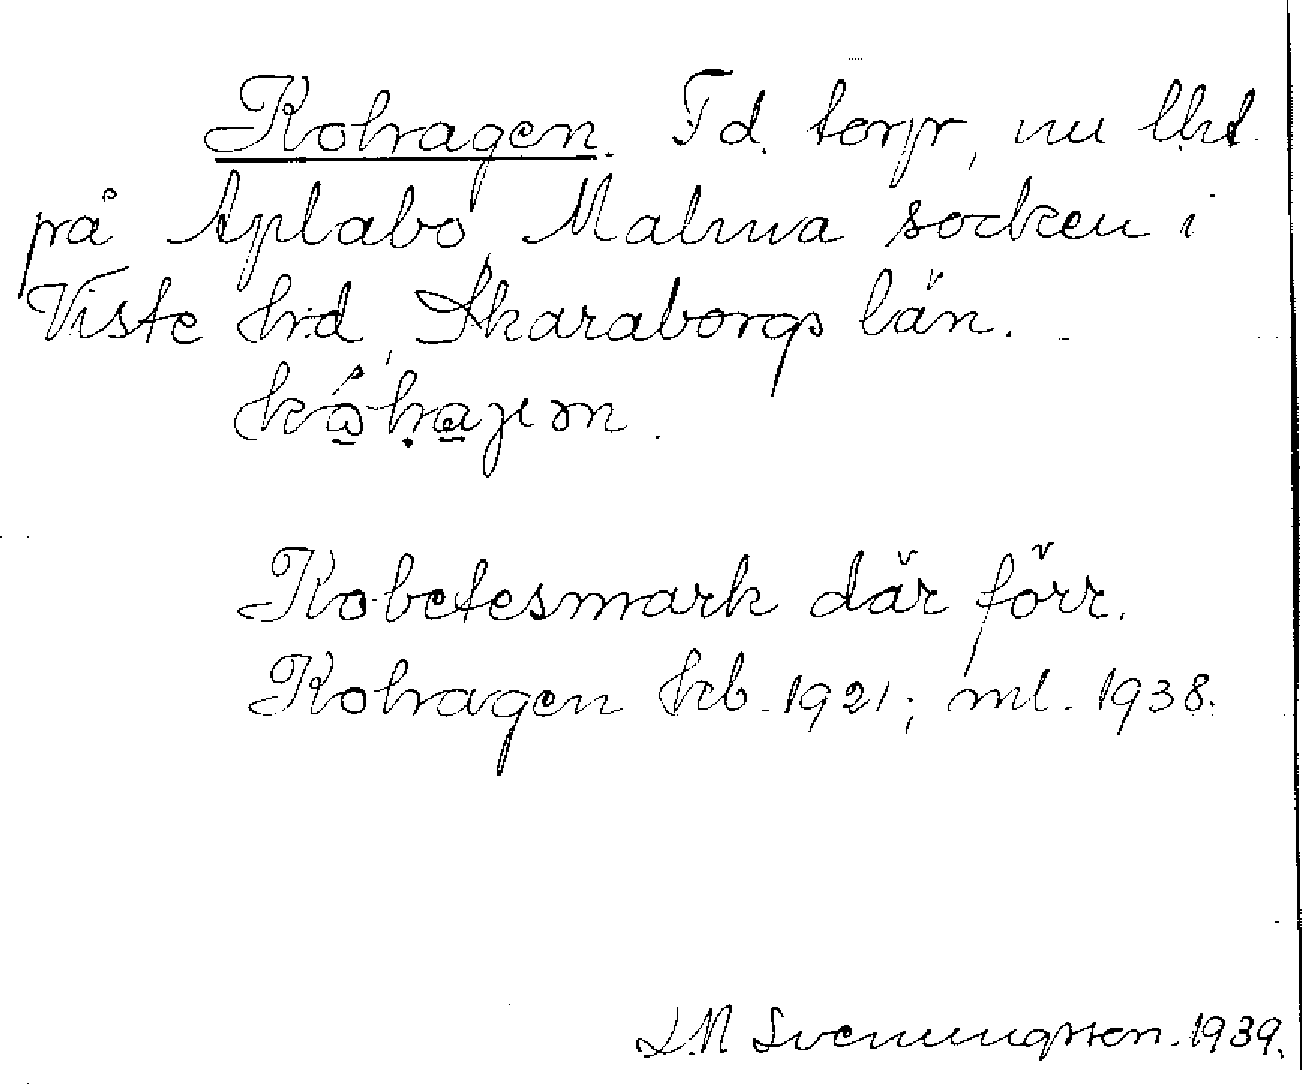 Kohagen. F.d. torp, nu lht
på Aplabo, Malma socken i
Viste hd, Skaraborgs län.
Kobetesmark där förr.
Kohagen kb. 1921; ml. 1938.
S.M Svenungsson. 1939.